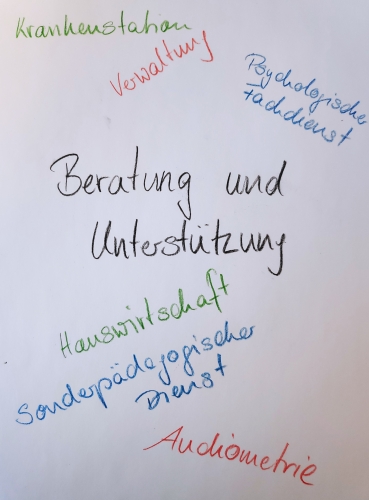 Krankenstation
Verwaltung
Psychologischer
Fachdienst
Beratung und
Unterstützung
Hauswirtschaft
Sonderpädagogischer
Dienst
Audiometrie